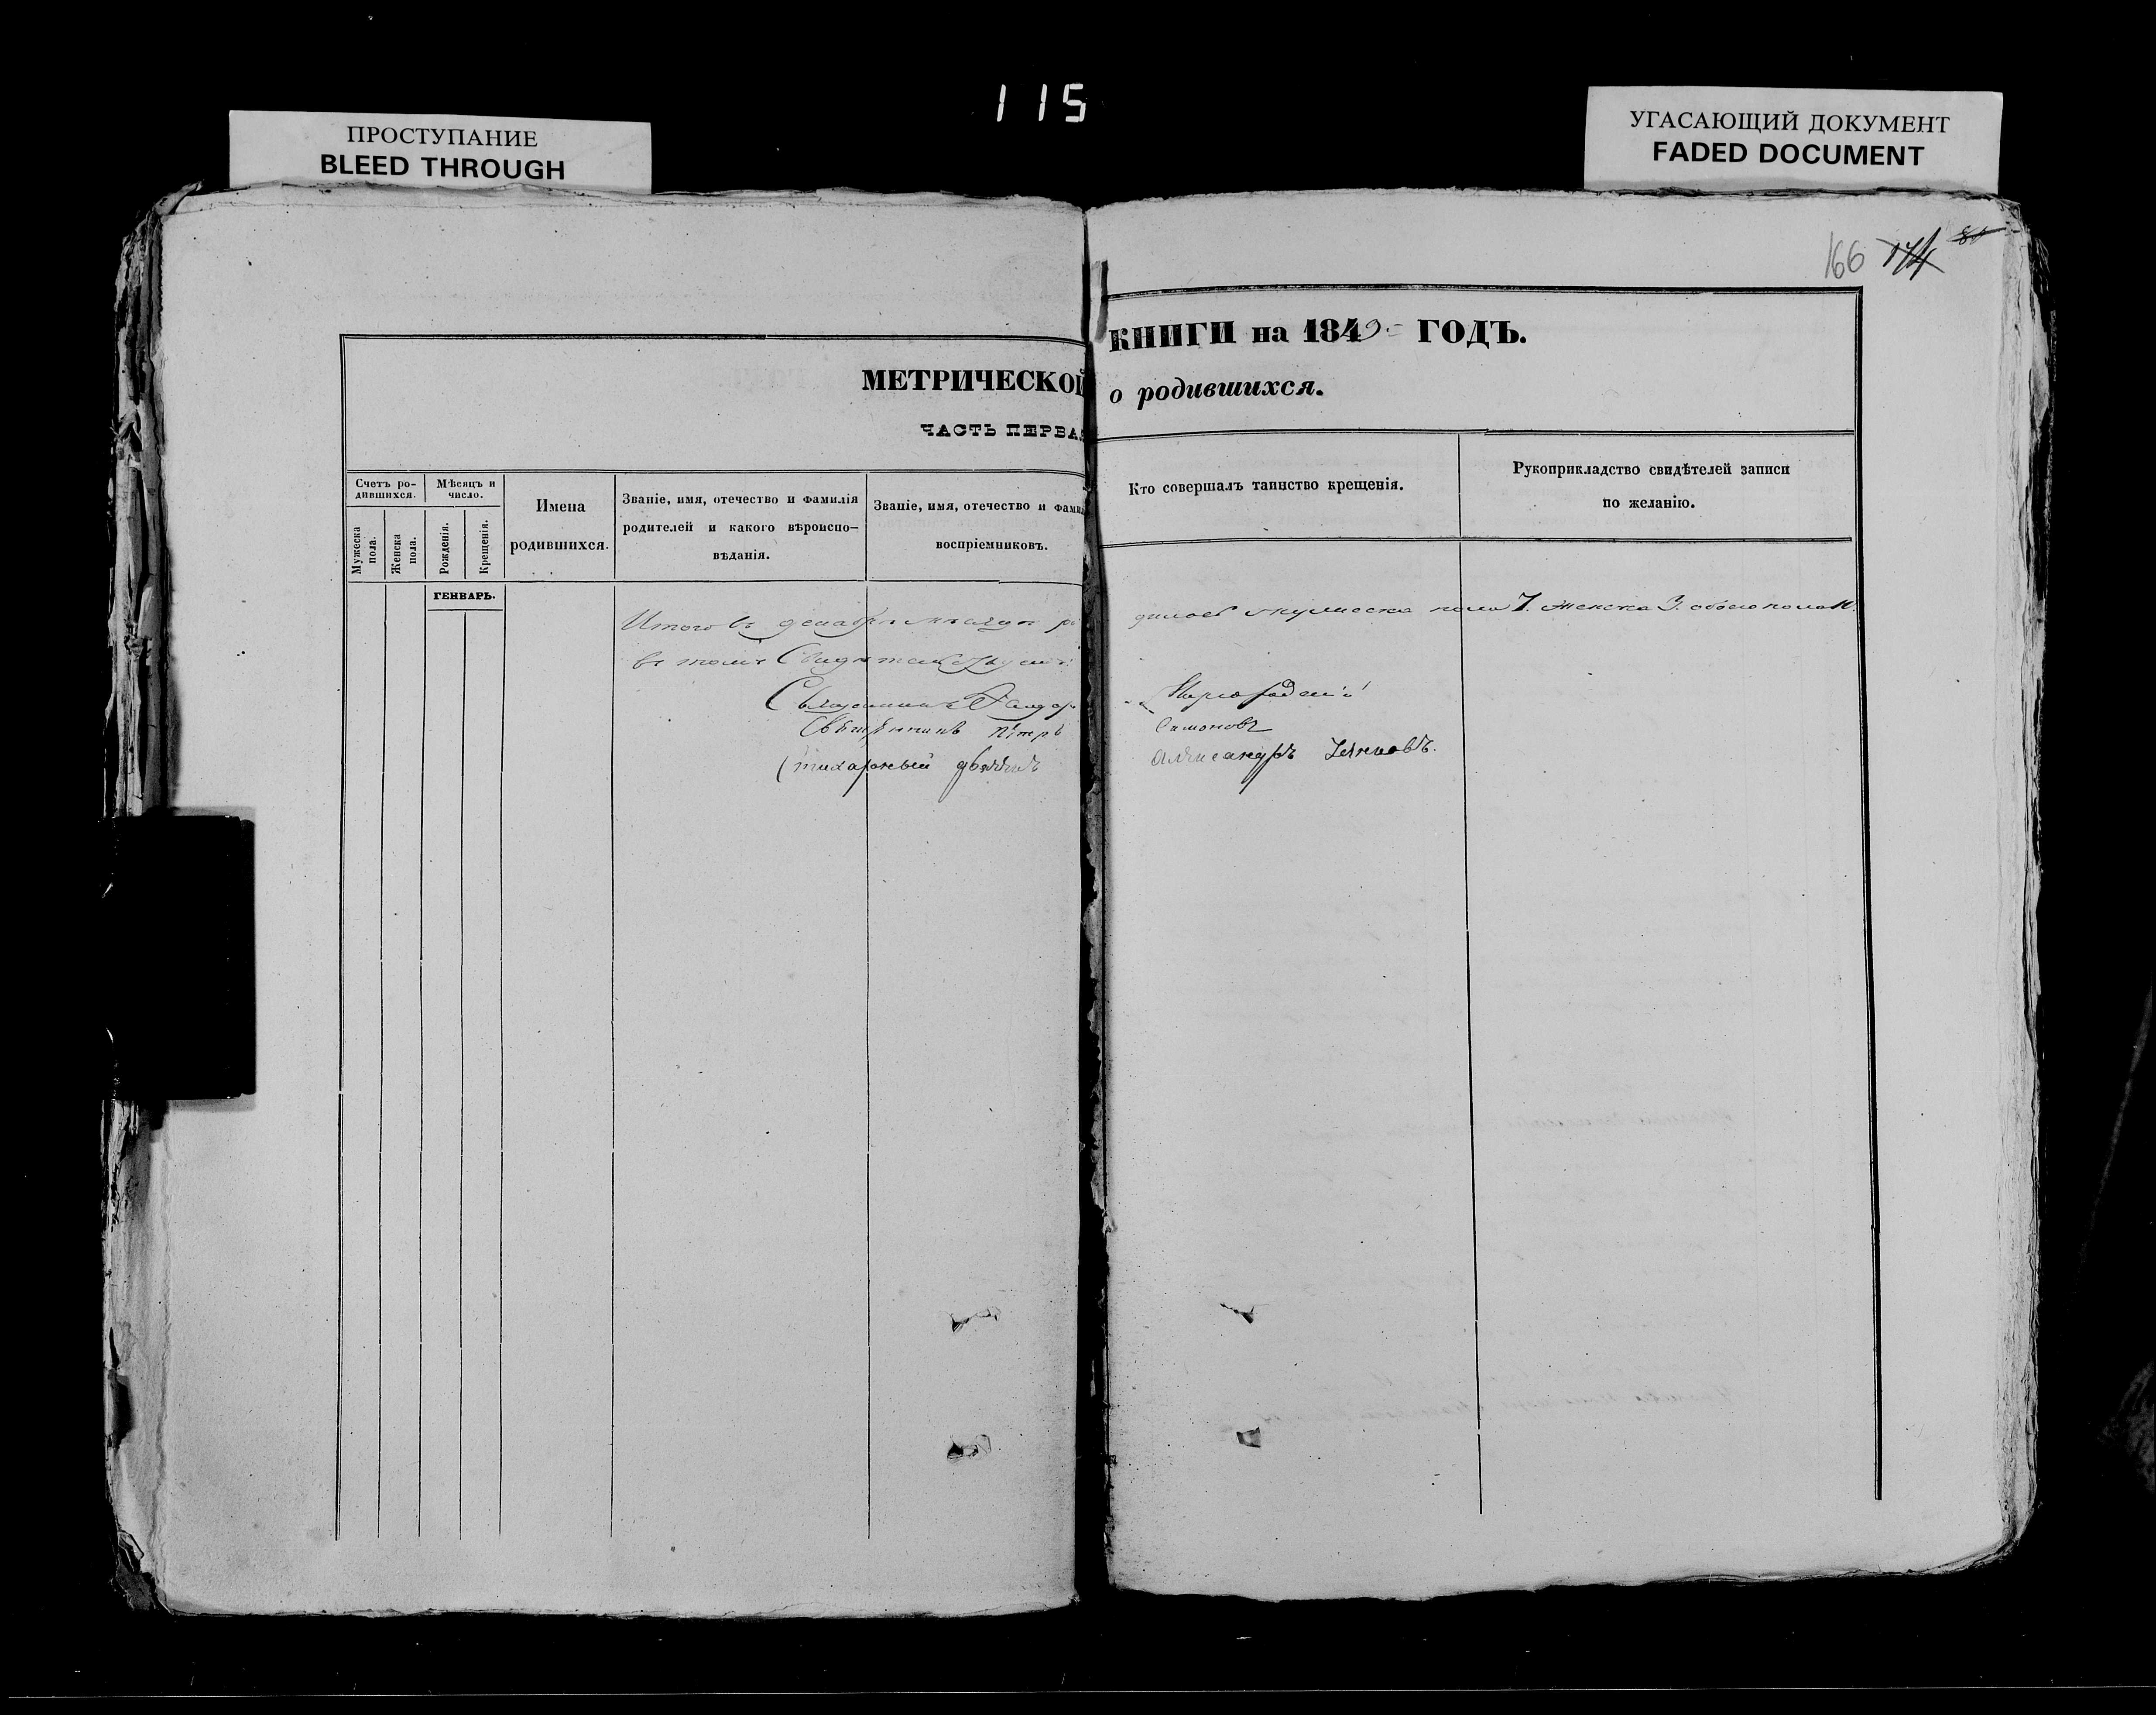 115
ПРОСТУПАНИЕ
BLEED THROUGH
УГАСАЮЩИЙ ДОКУМЕНТ
FADED DOCUMENT
166 174 80
МЕТРИЧЕСКОЙ КНИГИ на 1849 ГОДЪ.
ЧАСТЬ ПЕРВАЯ о родившихся.
Счетъ ро-
дившихся.
Мужеска
пола.
Женска
пола.
Мѣсяцъ и
число.
Рожденія.
Крещенія.
Имена
родившихся.
Званіе, имя, отечество и фамилія
родителей и какого вѣроиспо-
вѣданія.
Званіе, имя, отечество и фами
воспріемниковъ.
Кто совершалъ таинство крещенія.
Рукоприкладство свидѣтелей записи
по желанію.
ГЕНВАРЬ.
Итого въ декабрѣ мѣсяцѣ ро дилось мужеска пола 7. женска 3. обоего пола 10.
въ томъ Свидѣтельствуемъ:
Священникъ
Священникъ Петръ Симоновъ
Стихарный дьячекъ Александръ